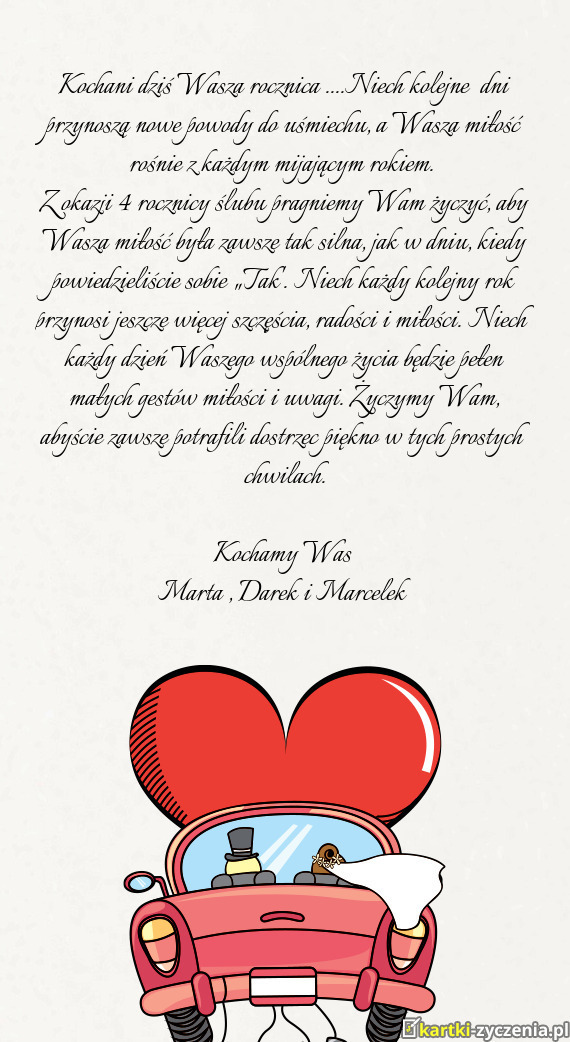 Kochani dziś Wasza rocznica ....Niech kolejne dni
przynoszą nowe powody do uśmiechu, a Wasza miłość
rośnie z każdym mijającym rokiem.
Z okazji 4 rocznicy ślubu pragniemy Wam życzyć, aby
Wasza miłość była zawsze tak silna, jak w dniu, kiedy
powiedzieliście sobie „Tak”. Niech każdy kolejny rok
przynosi jeszcze więcej szczęścia, radości i miłości. Niech
każdy dzień Waszego wspólnego życia będzie pełen
małych gestów miłości i uwagi. Życzymy Wam,
abyście zawsze potrafili dostrzec piękno w tych prostych
chwilach.
Kochamy Was
Marta , Darek i Marcelek
kartki-zyczenia.pl